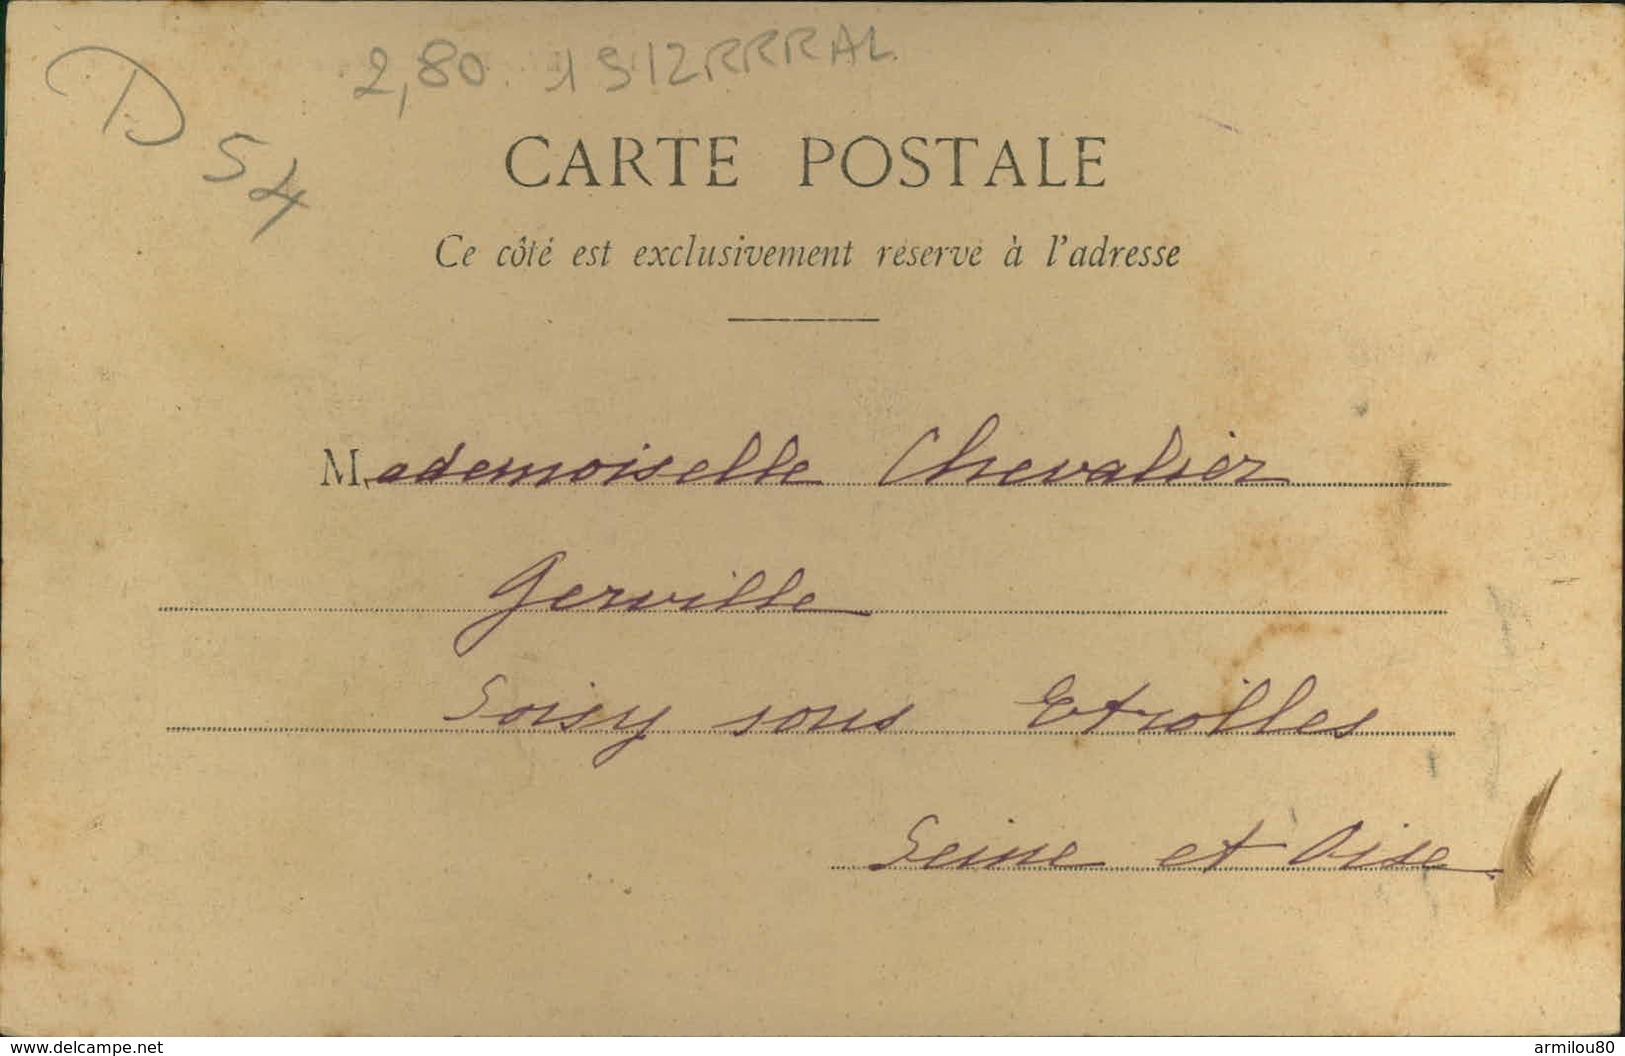 2,80 1912RRRRAL
D 54
CARTE POSTALE
Ce côté est exclusivement réservé à l'adresse
Mademoiselle Chevalier
Gerville
Soisy sous Etiolles
Seine et Oise
www.delcampe.net
armilou80